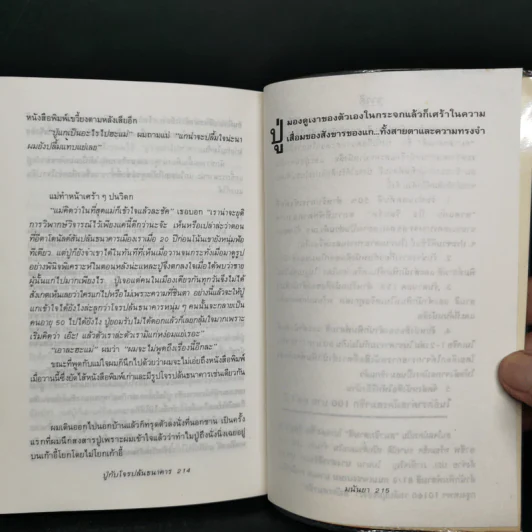 หนังสือพิมพ์เขวี้ยงตามหลังเสียอีก
"ปู่แกเป็นอะไรไปฮะแม่" ผมถามแม่ "แกน่าจะปลื้มใจน่ะนา
ผมยังปลื้มแทบแย่เลย"
แม่ทำหน้าเศร้า ๆ ปนวิตก
"แม่คิดว่าในที่สุดแม่ก็เข้าใจแล้วละชัด" เธอบอก "เราน่าจะยุติ
การวิพากษ์วิจารณ์ไว้เพียงแค่นี้ดีกว่านะจ๊ะ เห็นหรือเปล่าล่ะว่าตอน
ที่อีตาโดนัลด์สันปล้นธนาคารเมืองเราเมื่อ 20 ปีก่อนโน้นเขายังหนุ่มฟ้อ
ทีเดียว แต่ปู่ก็ยังจำเขาได้ในทันทีที่เห็นเมื่อวานจนกระทั่งเมื่อมาดูรูป
อย่างพินิจพิเคราะห์ในตอนหลังน่ะแหละปู่จึงตกลงใจเมื่อได้พบว่าชาย
ผู้นั้นแก่ไปมากเพียงไร ปู่เจอแต่คนในเมืองเดียวกันทุกวันจึงไม่ได้
สังเกตเห็นเลยว่าใครแก่ไปหรือไม่เพราะความที่ชินตา อย่างนี้แล้วจะให้ปู่
แกเข้าใจได้ยังไงล่ะลูกว่าโจรปล้นธนาคารหนุ่ม ๆ คนนั้นจะกลายเป็น
คนอายุ 50 ไปได้ยังไง ปู่ยอมรับไม่ได้ดอกแล้วก็เลยกลุ้มใจมากเพราะ
เริ่มคิดว่า เอ๊ะ! แล้วตัวเราล่ะตัวเรามิแก่หง่อมแย่เรอะ"
"เอาละฮะแม่" ผมว่า "ผมจะไม่พูดถึงเรื่องนี้อีกละ"
ขณะที่พูดกับแม่ใจผมก็นึกไปด้วยว่าผมจะไม่เอ่ยถึงหนังสือพิมพ์
เมื่อวานนี้ซึ่งยัดไส้หนังสือพิมพ์เก่าและมีรูปโจรปล้นธนาคารเช่นเดียวกัน
ผมเดินออกไปนอกบ้านแล้วก็ทรุดตัวลงนั่งที่นอกชาน เป็นครั้ง
แรกที่ผมนึกสงสารปู่เพราะผมเข้าใจแล้วว่าทำไมปู่ถึงนั่งนิ่งเฉยอยู่
บนเก้าอี้โยกโดยไม่โยกเก้าอี้
ปู่กับโจรปล้นธนาคาร 214
ปู่ มองดูเงาของตัวเองในกระจกแล้วก็เศร้าในความ
เสื่อมของสังขารของแก..ทั้งสายตาและความทรงจำ
มนันยา 215